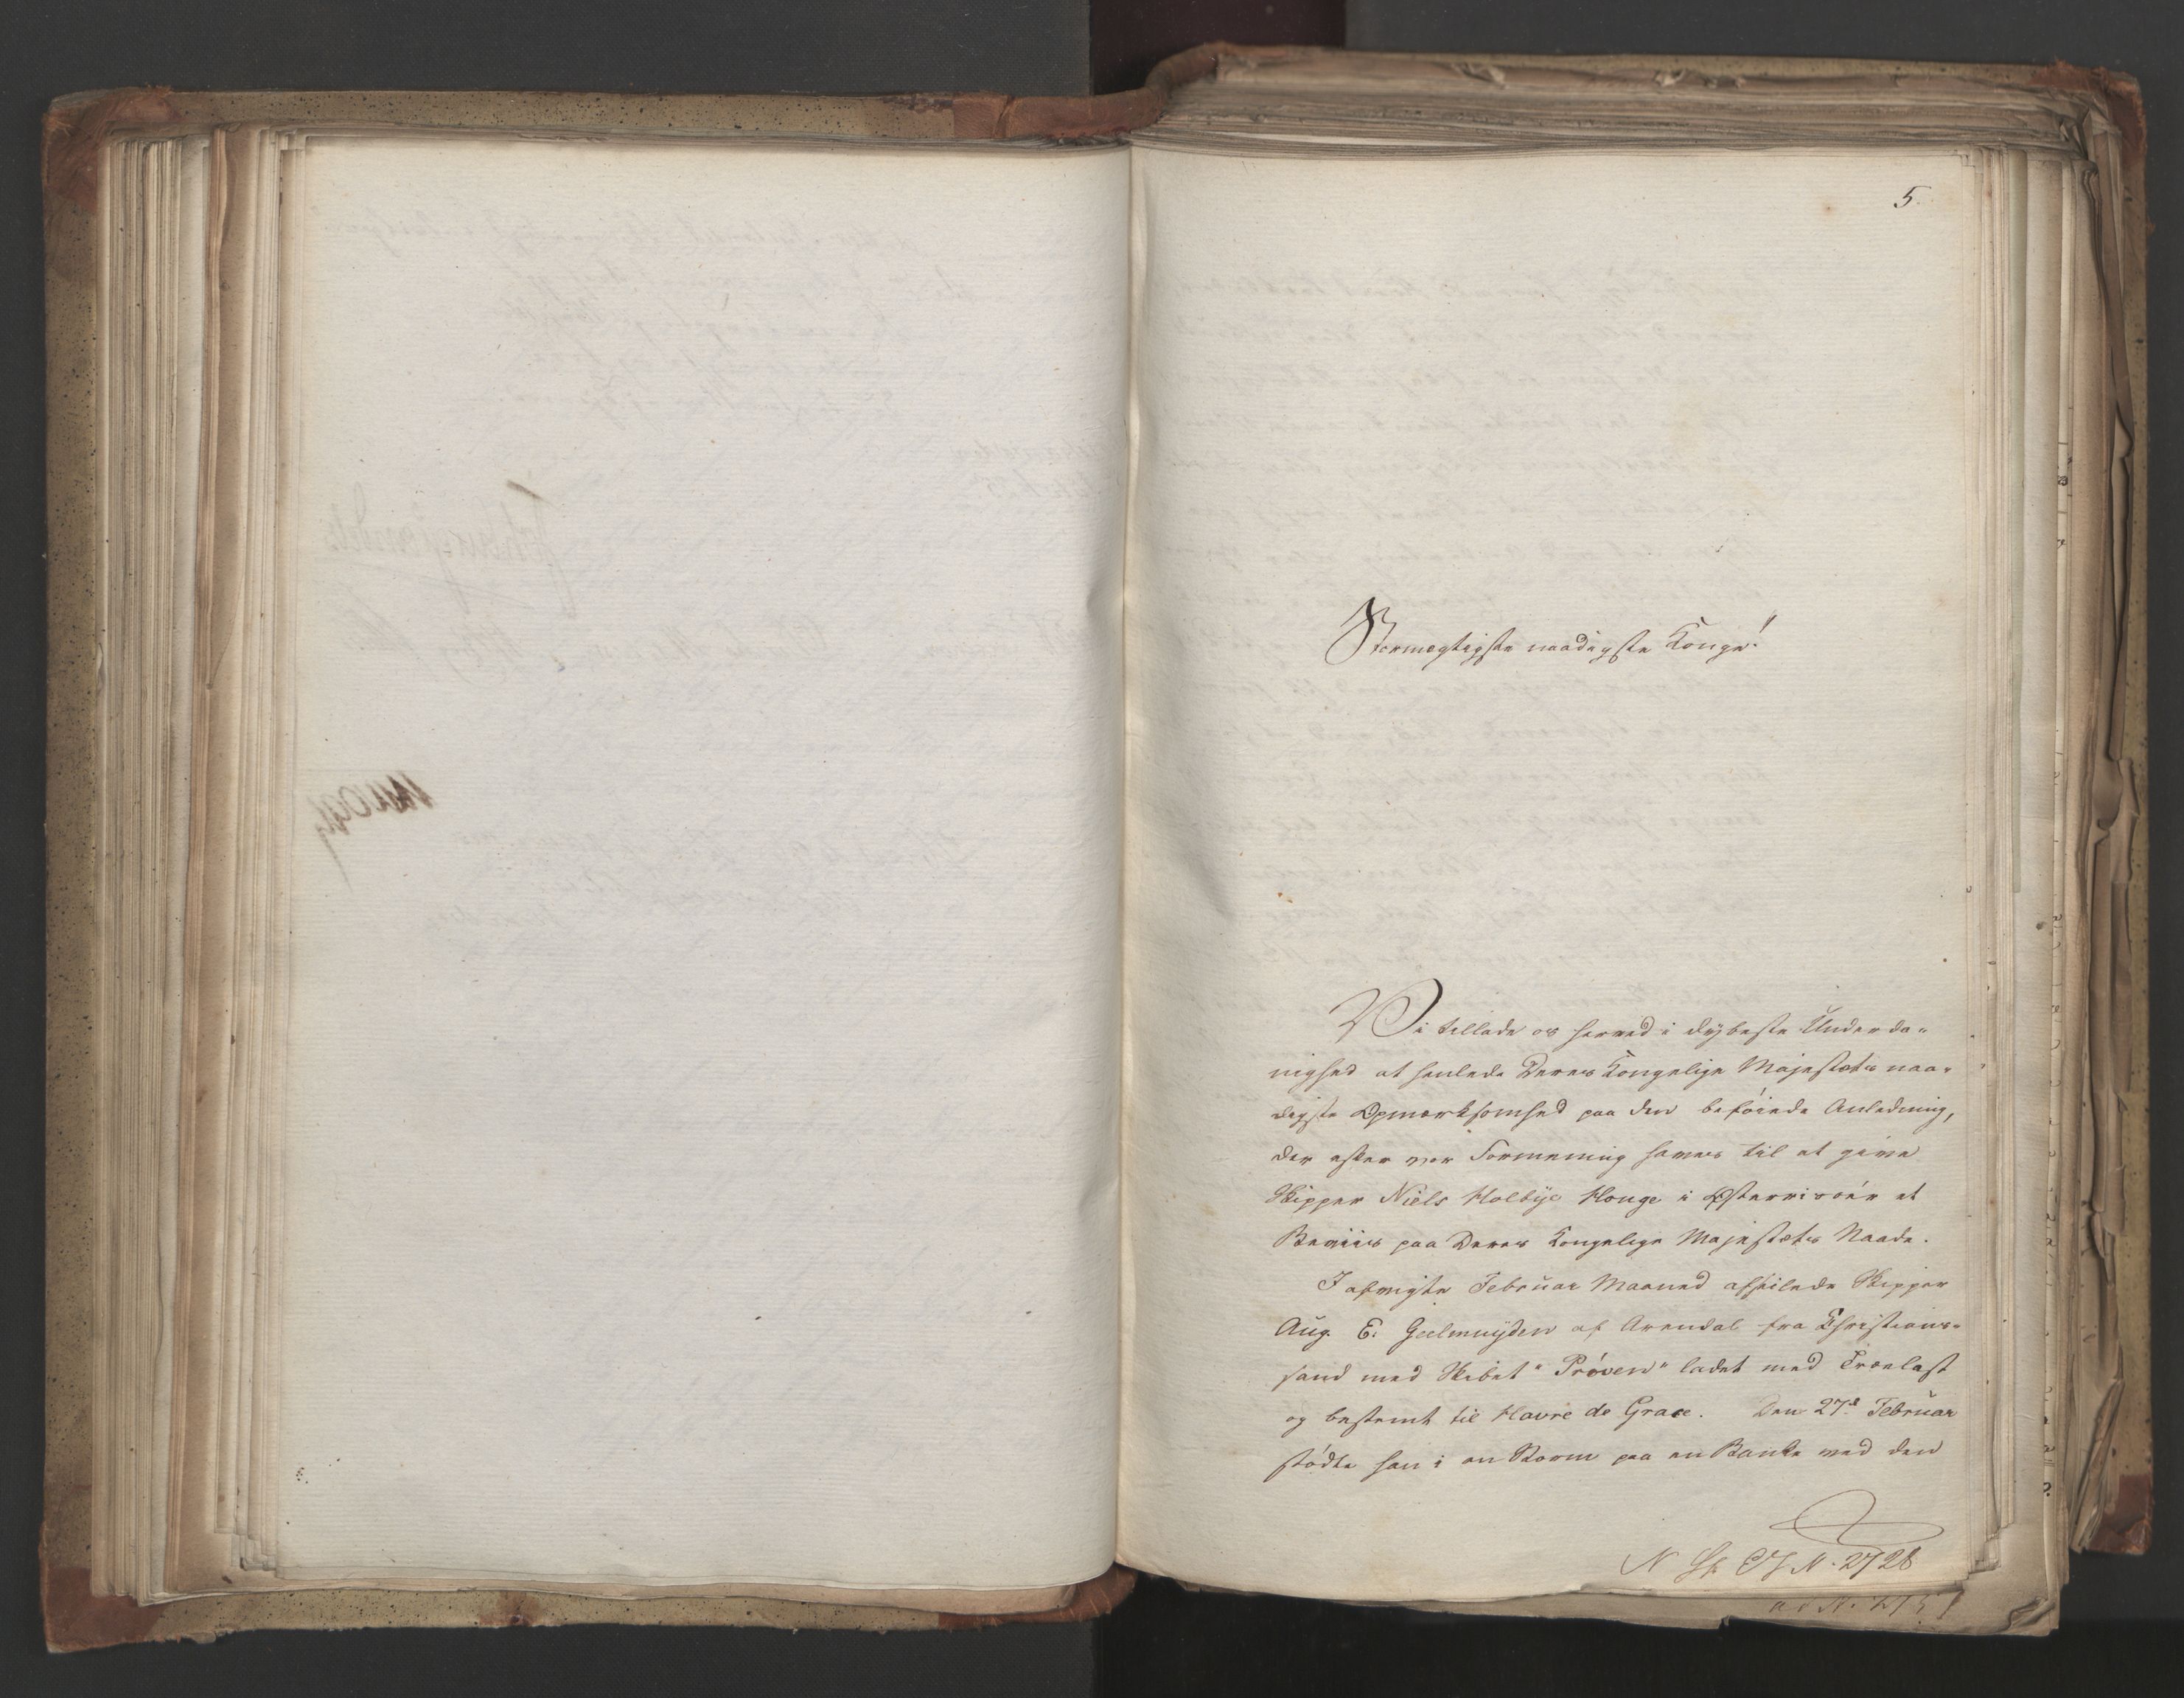 5.
Stormægtigste naadigste Konge!
Vi tillade os herved i dybeste Underda-
nighed at henlede Deres Kongelige Majestæts naa-
digste Opmærksomhed paa den beföiede Anledning,
der efter vor Formening haves til at give
Skipper Niels Holbye Houge i Østerrisöer et
Beviis paa Deres Kongelige Majestæts Naade.
I afvigte Februar Maaned afseilede Skipper
Aug. E. Geelmuyden af Arendal fra Christians-
sand med Skibet "Pröven" ladet med Trælast
og bestemt til Havre de Grace. Den 27d Februar
stödte han i en Storm paa en Banke ved den
N 2728
ad N.